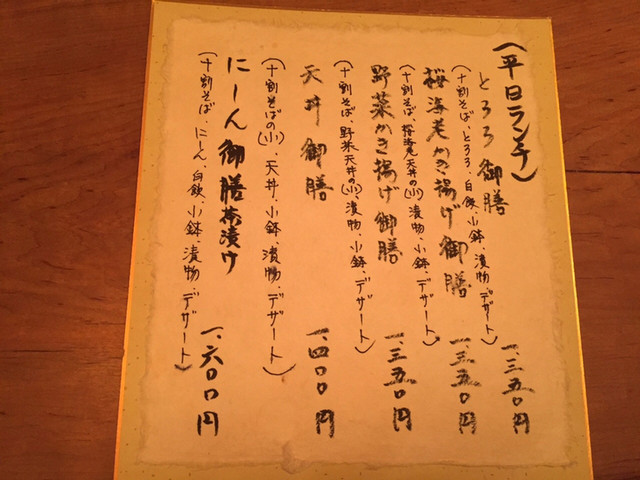 (平日ランチ)
とろろ御膳 一、三五〇円
(十割そば、とろろ、白飯、小鉢、漬物、デザート)
桜海老かき揚げ御膳 一、三五〇円
(十割そば、桜海老天丼の(小)、漬物、小鉢、デザート)
野菜かき揚げ御膳 一、三五〇円
(十割そば、野菜天丼の(小)、漬物、小鉢、デザート)
天丼御膳 一、四〇〇円
(十割そばの(小)、天丼、小鉢、漬物、デザート)
にーん御膳茶漬け 一、六〇〇円
(十割そば、にーん、白飯、小鉢、漬物、デザート)